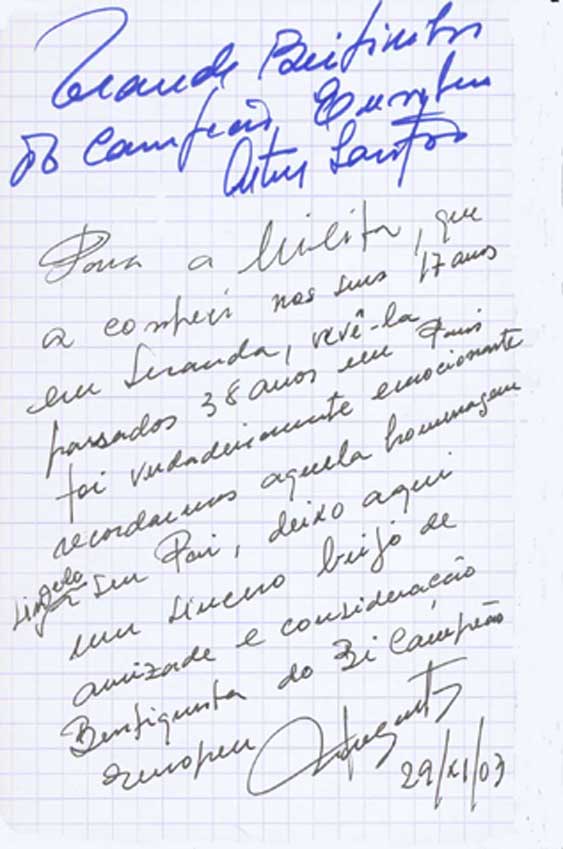 Grande Beijinho
do Campeão Europeu
Artur Santos
Para a Milita, que
a conheci nos seus 17 anos
em Luanda, revê-la
passados 38 anos em Paris
foi verdadeiramente emocionante
recordarmos aquela homenagem
singela a seu Pai, deixo aqui
um sincero beijo de
amizade e consideração
Benfiquista do Bi Campeão
Europeu
29/XI/03